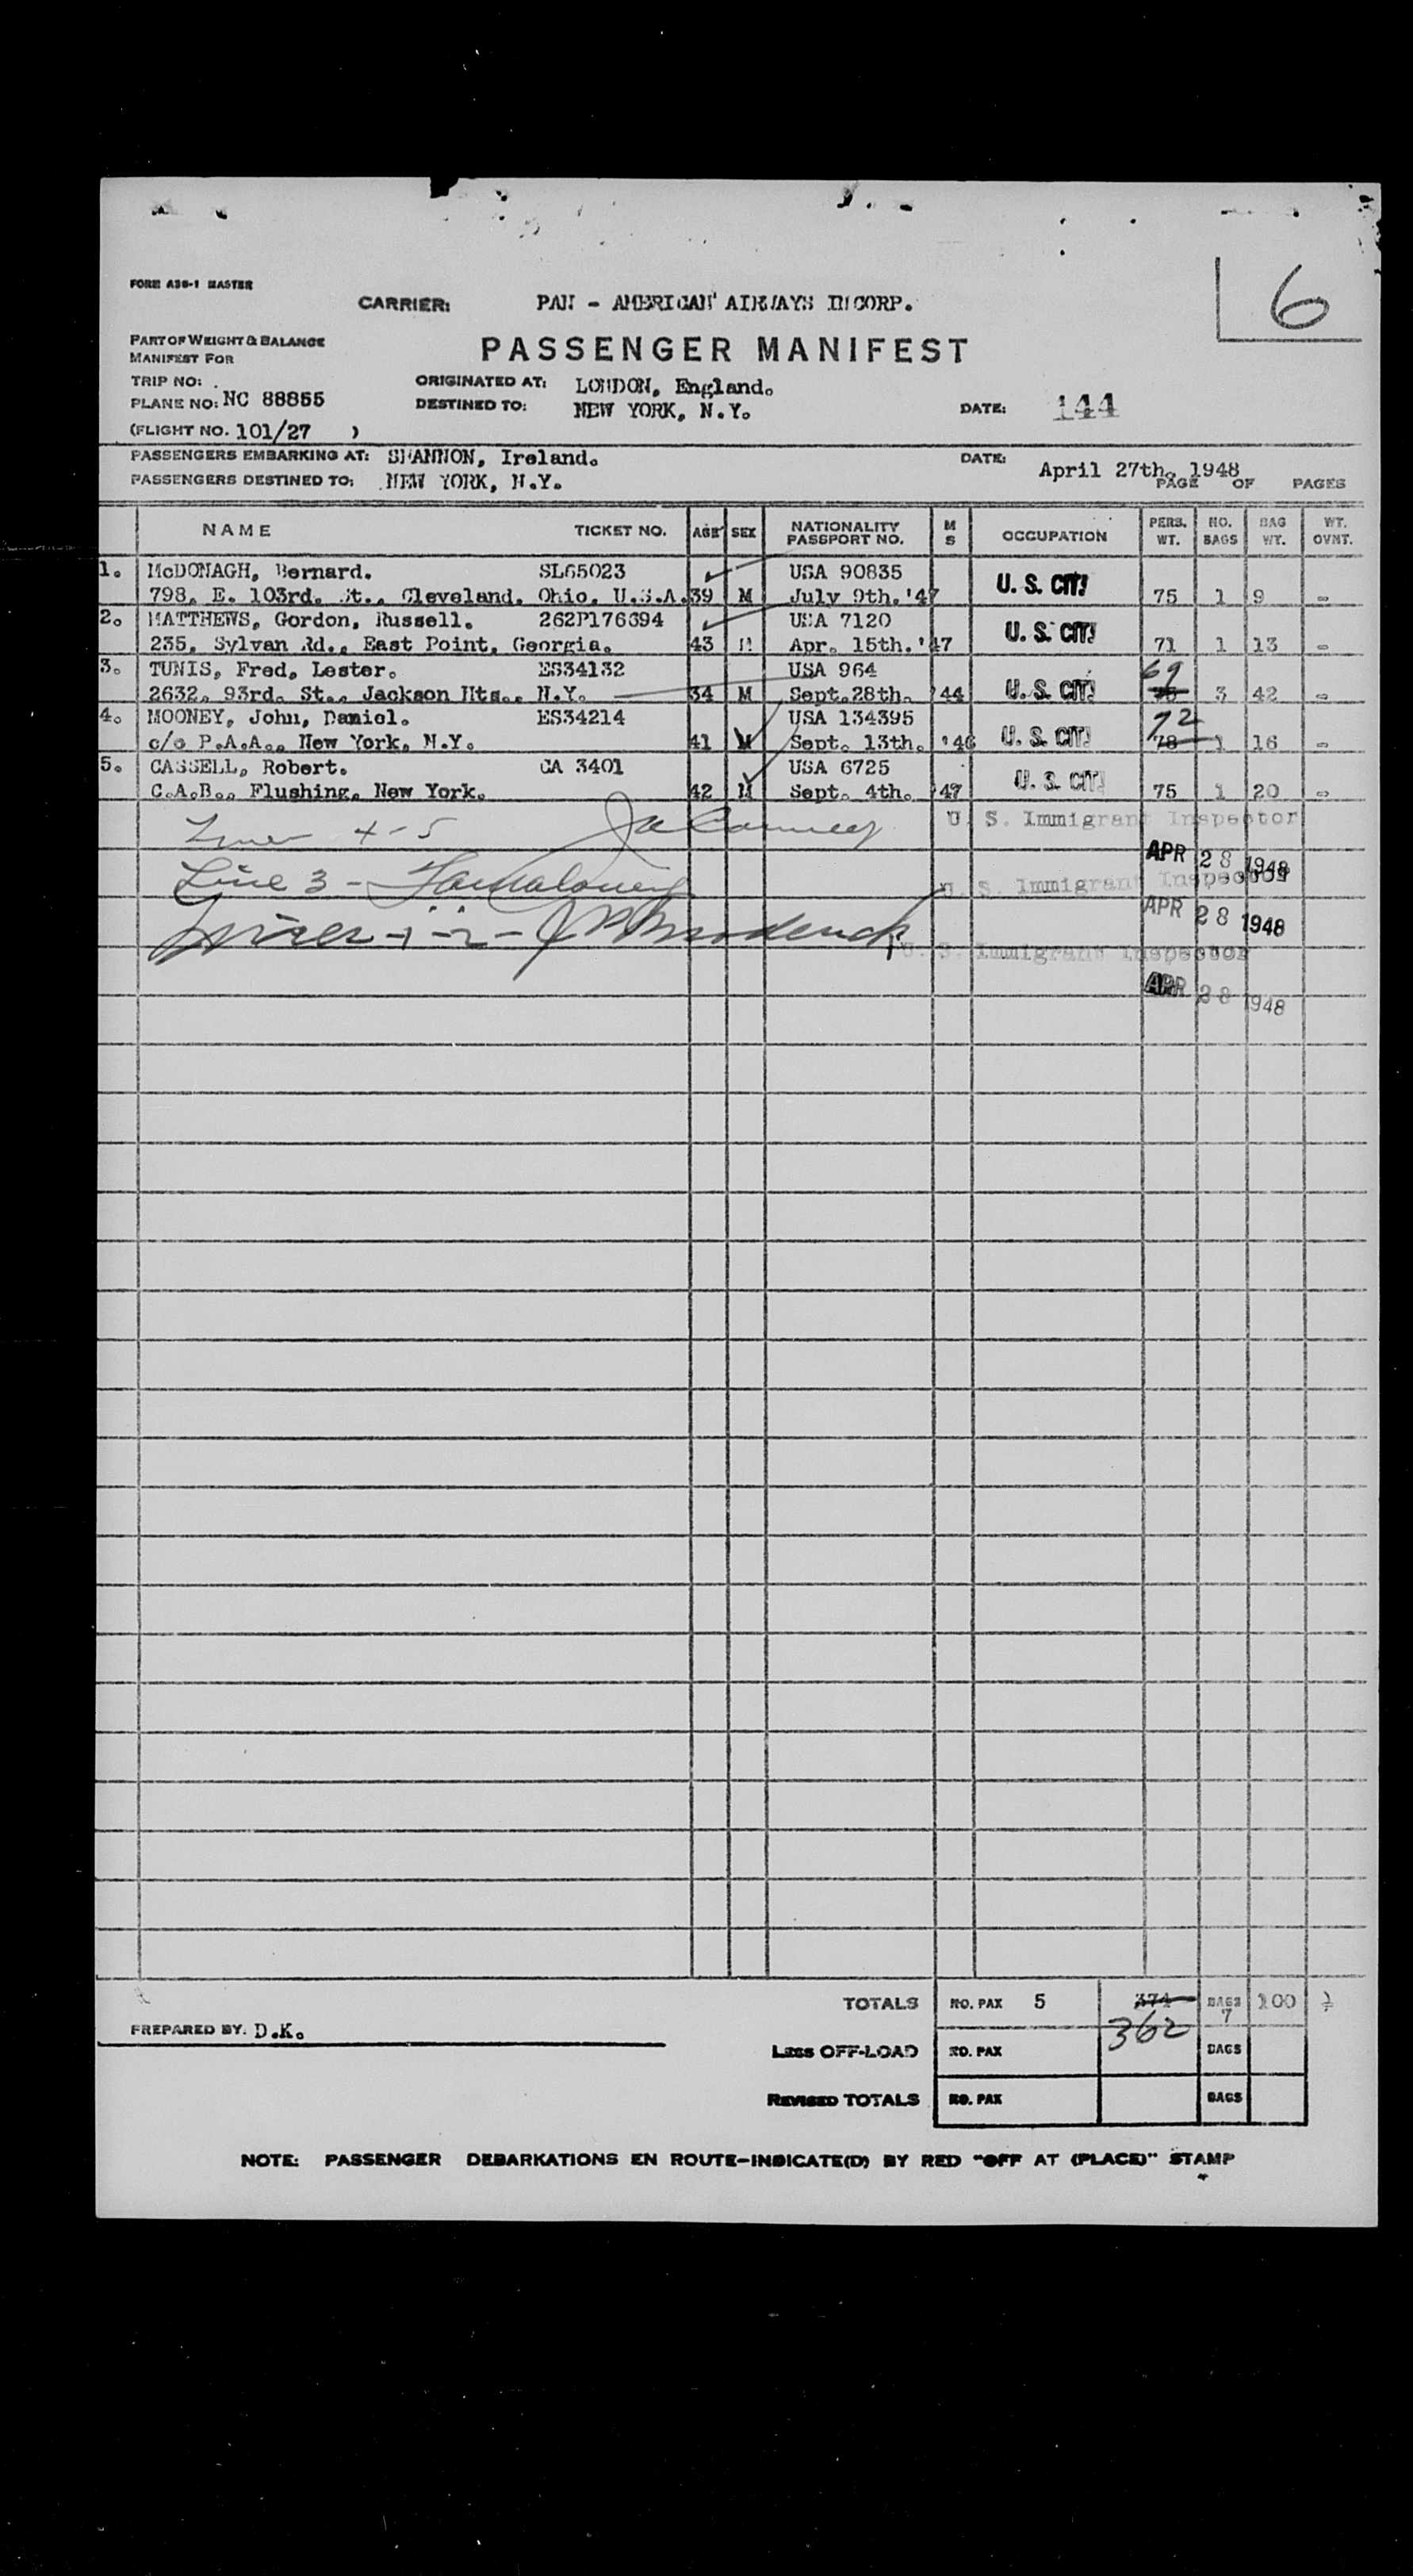 6
FORM A30-1 MASTER
CARRIER: PAN - AMERICAN AIRWAYS INCORP.
PART OF WEIGHT & BALANCE
MANIFEST FOR
PASSENGER MANIFEST
TRIP NO: ORIGINATED AT: LONDON, England.
PLANE NO: NC 88855 DESTINED TO: NEW YORK, N.Y. DATE: 144
(FLIGHT NO. 101/27 )
PASSENGERS EMBARKING AT: SHANNON, Ireland. DATE: April 27th, 1948
PASSENGERS DESTINED TO: NEW YORK, N.Y. PAGE OF PAGES
NAME TICKET NO. AGE SEX NATIONALITY PASSPORT NO. M S OCCUPATION PERS. WT. NO. BAGS BAG WT. WT. OVNT.
1. McDONAGH, Bernard. SL65023 USA 90835 U. S. CIT!
798, E. 103rd. St., Cleveland, Ohio, U.S.A. 39 M July 9th. '47 75 1 9 -
2. MATTHEWS, Gordon, Russell. 262P176394 USA 7120 U. S. CIT!
235, Sylvan Rd., East Point, Georgia. 43 M Apr. 15th. '47 71 1 13 -
3. TUNIS, Fred, Lester. ES34132 USA 964 69
2632, 93rd. St., Jackson Hts., N.Y. 34 M Sept. 28th. '44 U. S. CIT! 3 42 -
4. MOONEY, John, Daniel. ES34214 USA 134395 72
c/o P.A.A., New York, N.Y. 41 M Sept. 13th. '46 U. S. CIT! 78 1 16 -
5. CASSELL, Robert. CA 3401 USA 6725 U. S. CIT!
C.A.B., Flushing, New York. 42 M Sept. 4th. '47 75 1 20 -
4-5 U. S. Immigrant Inspector
APR 28 1948
Line 3 - U. S. Immigrant Inspector
APR 28 1948
Lines 1-2 - U. S. Immigrant Inspector
APR 28 1948
TOTALS NO. PAX 5 374 BAGS 7 100
PREPARED BY. D.K. 362
LESS OFF-LOAD NO. PAX BAGS
REVISED TOTALS NO. PAX BAGS
NOTE: PASSENGER DEBARKATIONS EN ROUTE-INDICATE(D) BY RED "OFF AT (PLACE)" STAMP